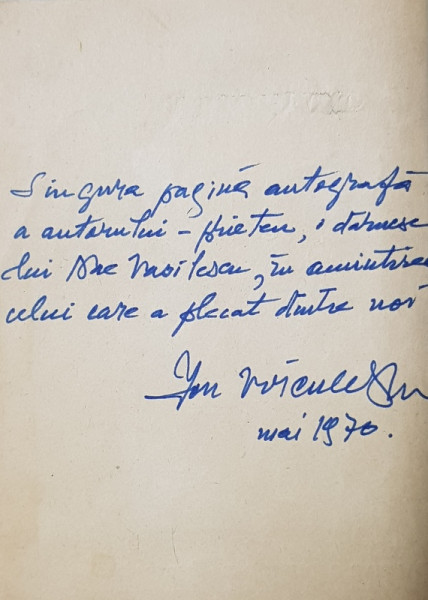 Singura pagină autografă
a autorului - prieten, o dăruiesc
lui Nae Vasilescu, în amintirea
celui care a plecat dintre noi
Ion Voiculescu
mai 1970.